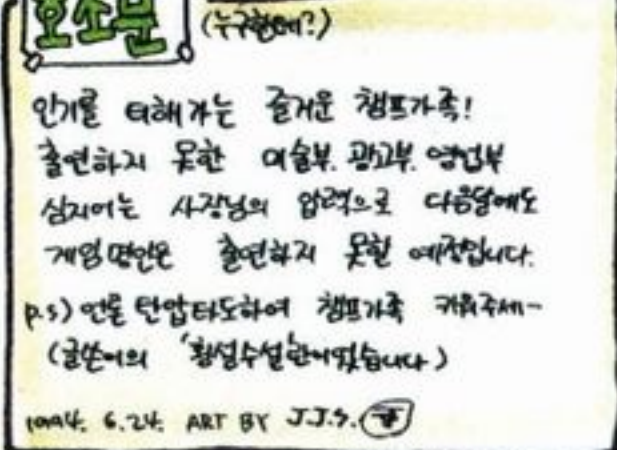 호소문 (누구한테?)
인기를 더해가는 즐거운 챔프가족!
출연하지 못한 미술부. 광고부. 영업부
심지어는 사장님의 압력으로 다음달에도
게임명인은 출연하지 못할 예정입니다.
p.s) 언론탄압타도하여 챔프가족 키워주세~
(글쓴이의 '횡설수설'란이었습니다)
1994. 6. 24. ART BY J.J.S.